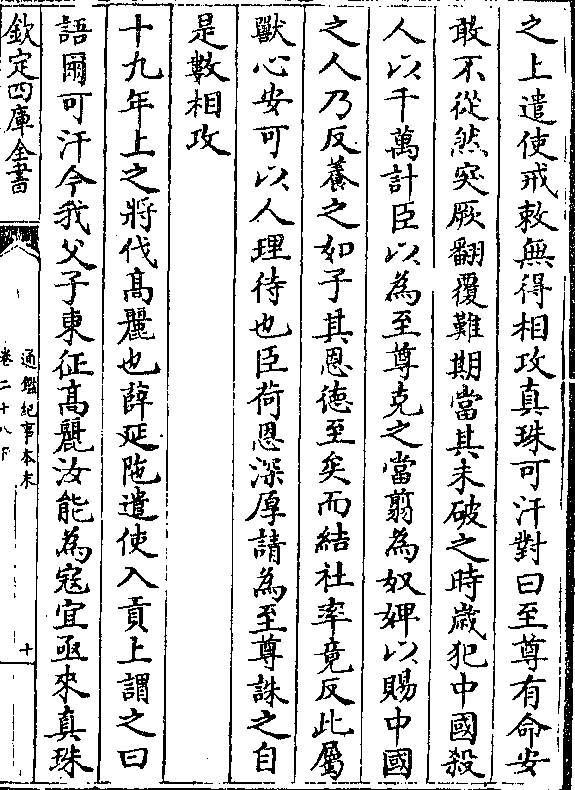 之上遣使戒敕無得相攻真珠可汗對曰至尊有命安
敢不從然突厥翻覆難期當其未破之時歲犯中國殺
人以千萬計臣以為至尊克之當翦為奴婢以賜中國
之人乃反養之如子其恩德至矣而結社率竟反此屬
獸心安可以人理待也臣荷恩深厚請為至尊誅之自
是數相攻
十九年上之將伐高麗也薛延陁遣使入貢上謂之曰
語爾可汗今我父子東征高麗汝能為寇宜亟來真珠
欽定四庫全書
通鑑紀事本末
卷二十八下
十